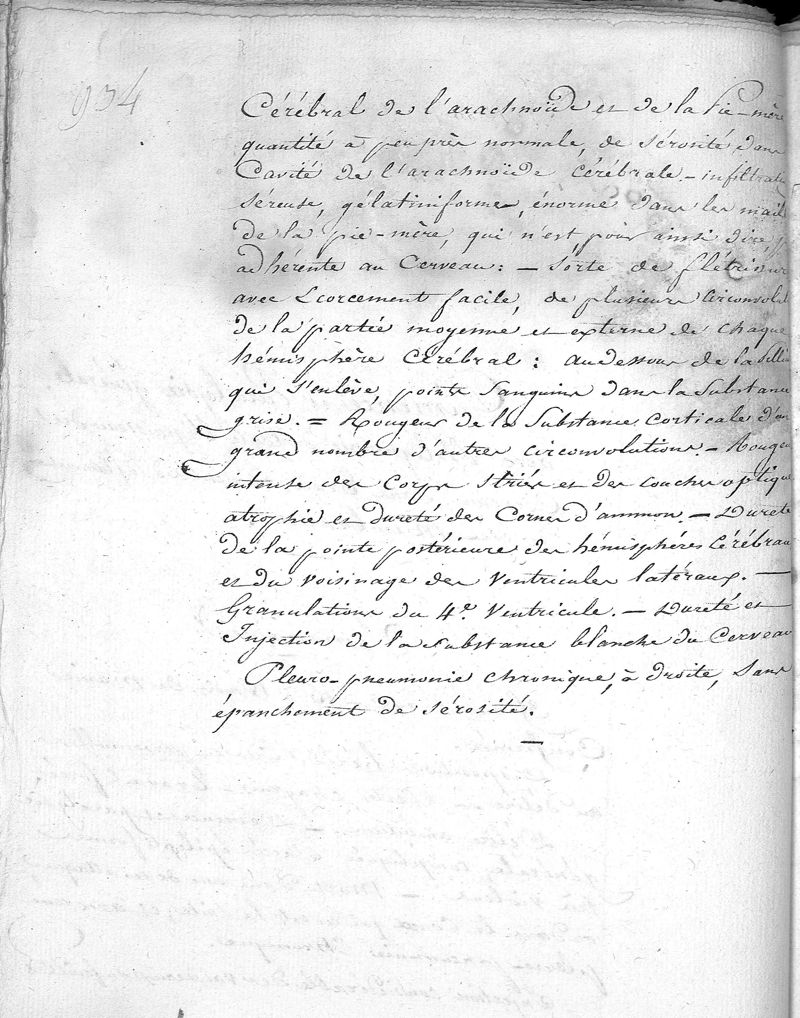 934
Cérébral de l'arachnoïde et de la Pie-mère
quantité à peu près normale, de sérosité dans
Cavité de l'arachnoïde cérébrale. – infiltrati
séreuse, gélatiniforme, énorme dans les mail
de la pie-mère, qui n'est, pour ainsi dire, p
adhérente au Cerveau : – Sorte de flétrissur
avec Ecorcement facile, de plusieurs circonvolut
de la partie moyenne et externe de chaque
hémisphère cérébral : audessous de la
qui s'enlève, points Sanguins dans la Substance
grise. = Rougeur de la Substance corticale d'un
grand nombre d'autres circonvolutions. – Rougeu
intense des Corps striés et des couches optique
atrophie et dureté des Cornes d'ammon. – Dureté
de la pointe postérieure des hémisphères Cérébrau
et du voisinage des Ventricules latéraux. –
Granulations du 4e. Ventricule. – Dureté et
Injection de la substance blanche du Cerveau
Pleuro-pneumonie chronique, à droite, Sans
épanchement de sérosité.